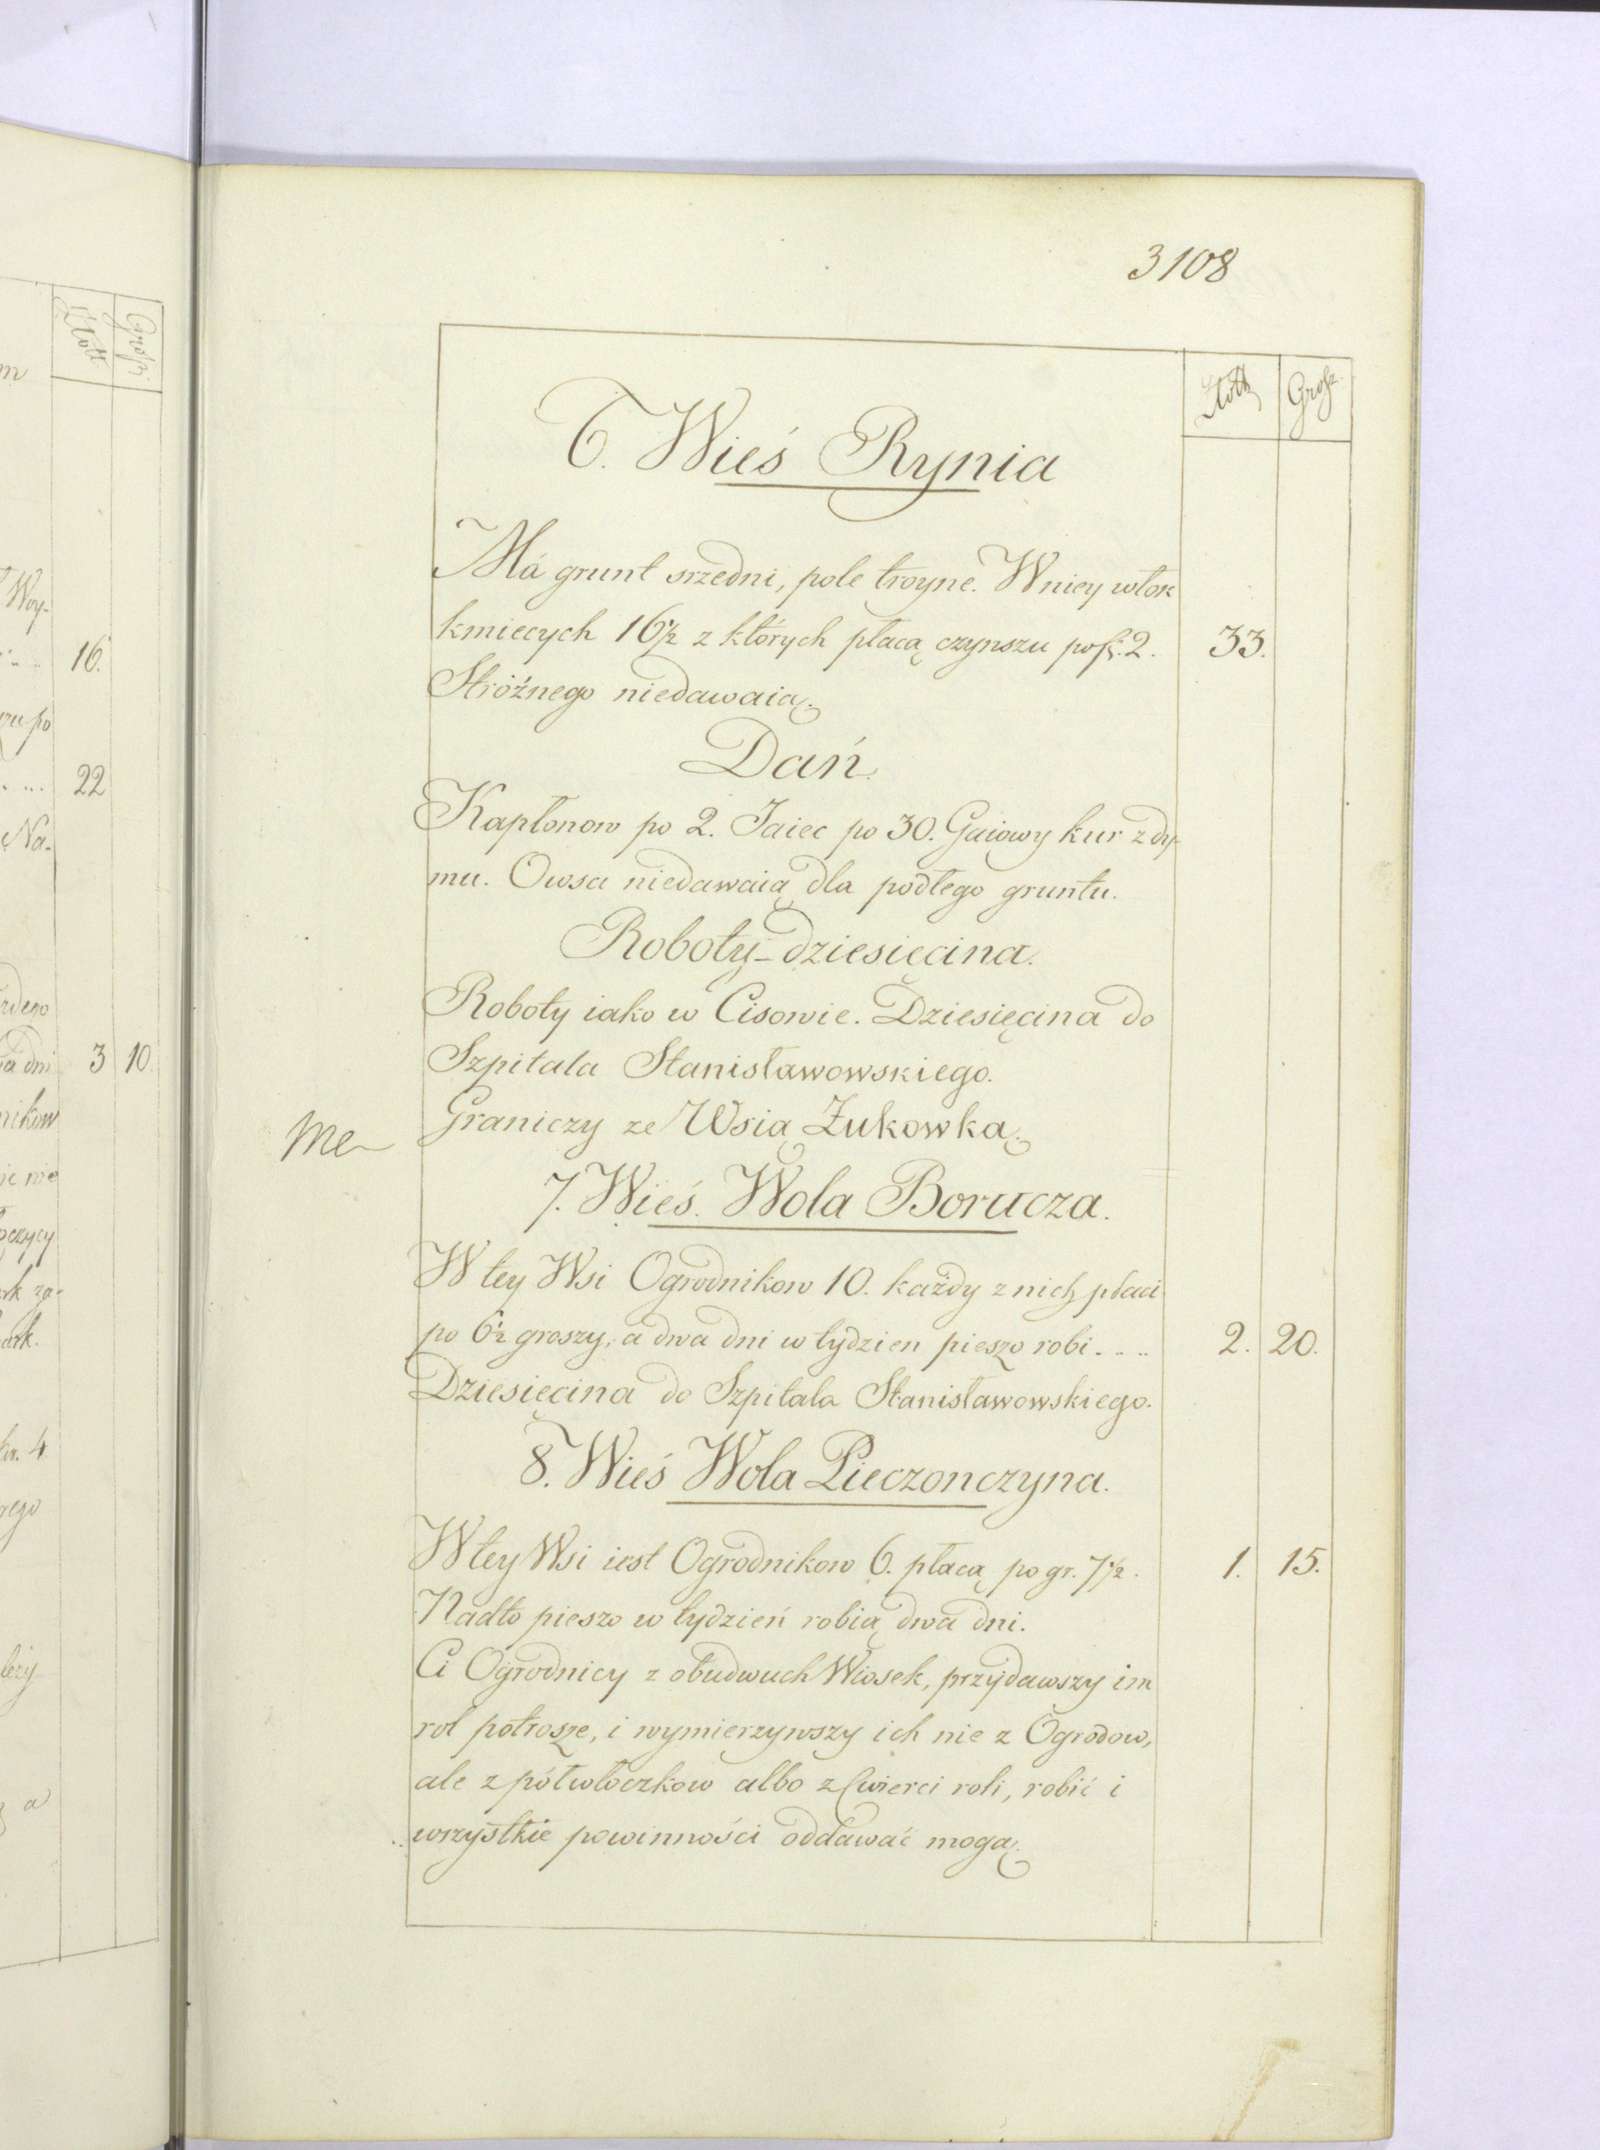 3108
Złott Grosz.
6. Wieś Rynia
Má grunt srzedni, pole troyne. W niey włok
kmiecych 16½ z których płacą czynszu po fl. 2. 33.
Stróżnego niedawaią.
Dań.
Kapłonow po 2. Jaiec po 30. Gaiowy kur z dy-
mu. Owsa niedawaią dla podłego gruntu.
Roboty_dziesięcina.
Roboty iako w Cisowie. Dziesięcina do
Szpitala Stanisławowskiego.
Graniczy ze Wsią Żukowką.
7. Wieś. Wola Borucza.
W tey Wsi Ogrodnikow 10. każdy z nich płaci
po 6½ groszy, a dwa dni w tydzien pieszo robi.... 2. 20.
Dziesięcina do Szpitala Stanisławowskiego.
8. Wieś Wola Pieczonczyna.
W tey Wsi iest Ogrodnikow 6. płacą po gr. 7½. 1. 15.
Nadto pieszo w tydzień robią dwa dni.
Ci Ogrodnicy z obudwuch Wiosek, przydawszy im
rol potrosze, i wymierzywszy ich nie z Ogrodow,
ale z półwłoczkow albo z Cwierci roli, robić i
wszystkie powinności oddawać mogą.
Złott Grosz.
Woy-
16.
22
Na-
3 10
a dni
nikow